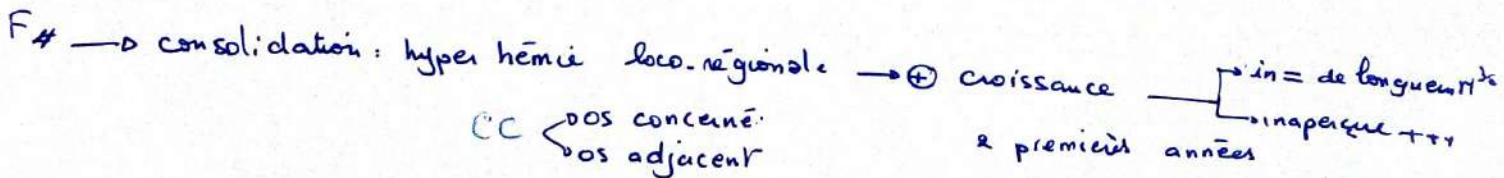 F# → consolidation : hyper hémie loco-régionale → ⊕ croissance → in= de longueur MI
→ inaperçue +++
CC < os concerné.
os adjacent
2 premières années